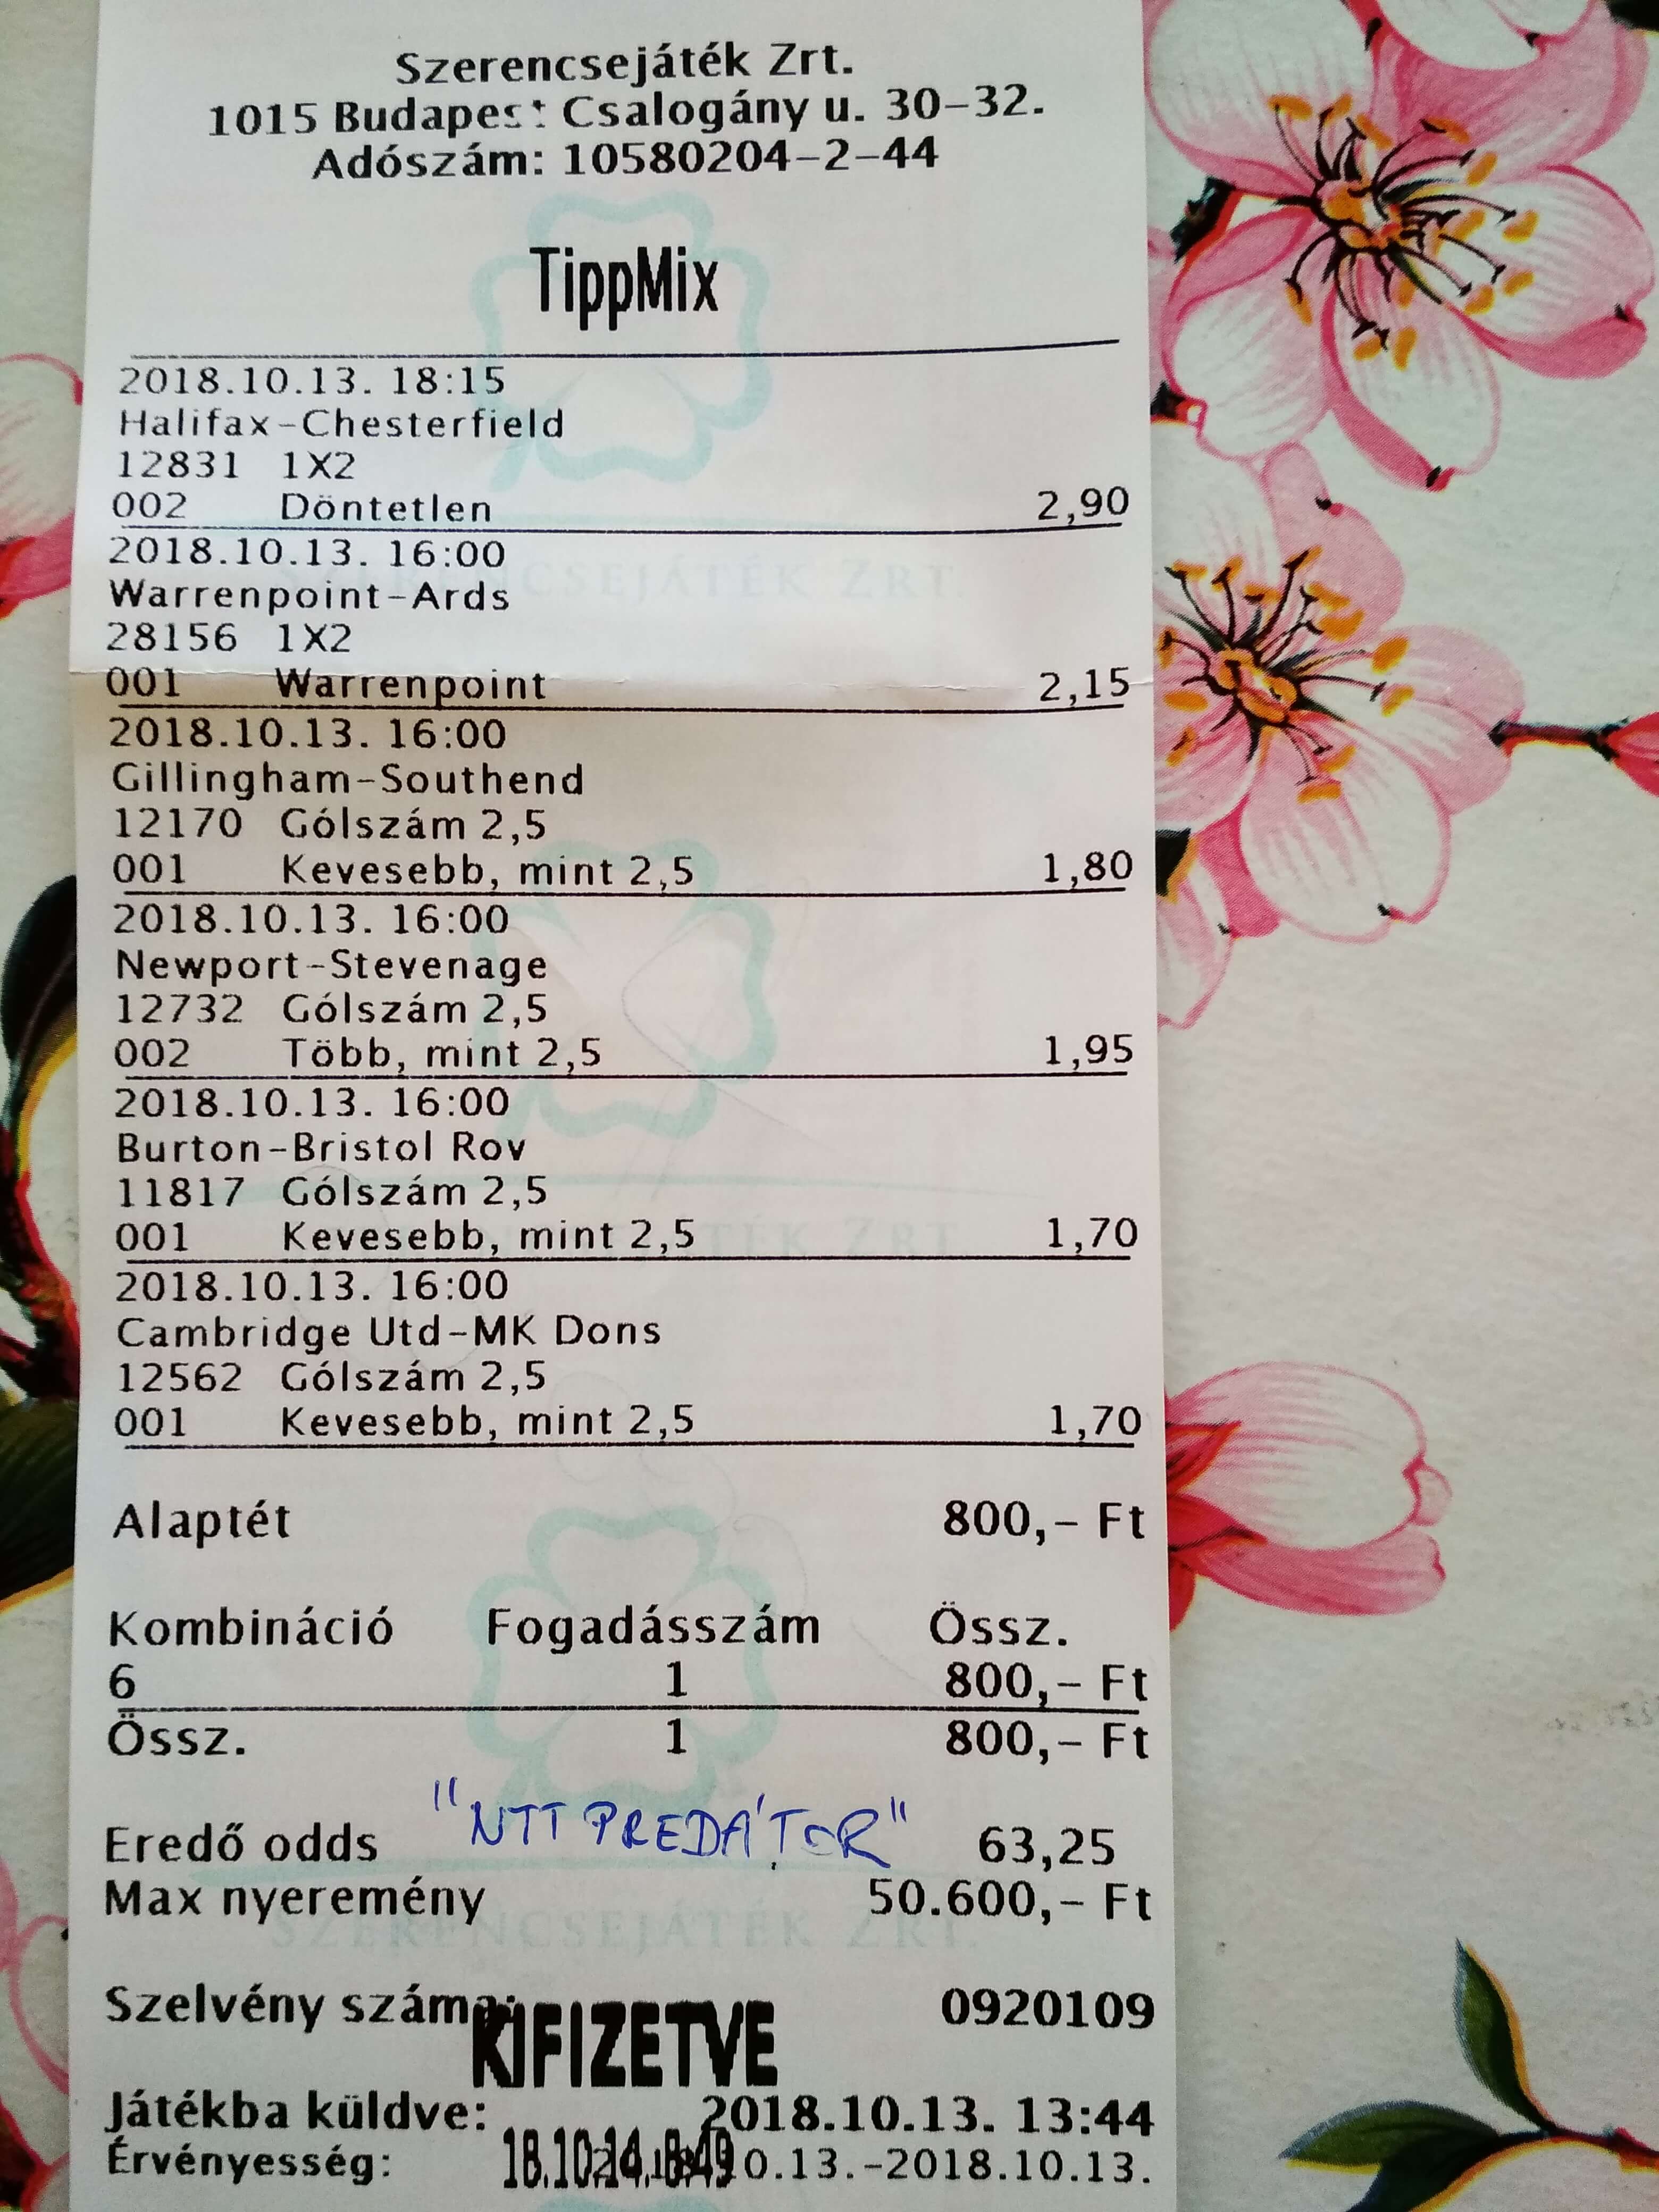 Szerencsejáték Zrt.
1015 Budapest Csalogány u. 30-32.
Adószám: 10580204-2-44
TippMix
2018.10.13. 18:15
Halifax-Chesterfield
12831 1X2
002 Döntetlen 2,90
2018.10.13. 16:00
Warrenpoint-Ards
28156 1X2
001 Warrenpoint 2,15
2018.10.13. 16:00
Gillingham-Southend
12170 Gólszám 2,5
001 Kevesebb, mint 2,5 1,80
2018.10.13. 16:00
Newport-Stevenage
12732 Gólszám 2,5
002 Több, mint 2,5 1,95
2018.10.13. 16:00
Burton-Bristol Rov
11817 Gólszám 2,5
001 Kevesebb, mint 2,5 1,70
2018.10.13. 16:00
Cambridge Utd-MK Dons
12562 Gólszám 2,5
001 Kevesebb, mint 2,5 1,70
Alaptét 800,- Ft
Kombináció Fogadásszám Össz.
6 1 800,- Ft
Össz. 1 800,- Ft
"NTT PREDÁTOR"
Eredő odds 63,25
Max nyeremény 50.600,- Ft
SZERENCSEJÁTÉK ZRT.
Szelvény száma: 0920109
KIFIZETVE
Játékba küldve: 2018.10.13. 13:44
18.10.14. 8:49
Érvényesség: 10.13.-2018.10.13.